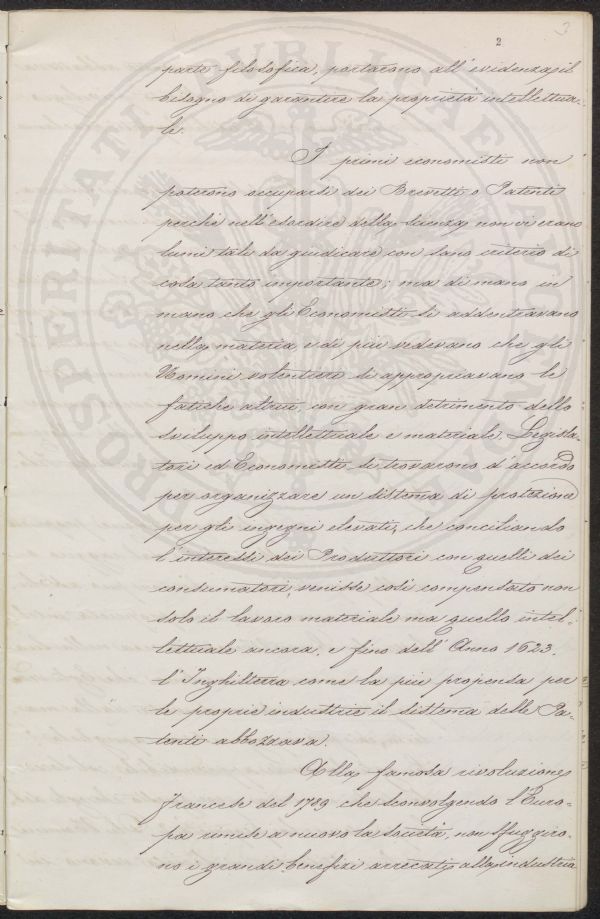 3
2
parte filosofica, portarono all'evidenza il
bisogno di garantire la proprietà intellettua-
le.
I primi economisti non
poterono occuparsi dei Brevetti o Patenti
perchè nell'esordire della scienza non vi erano
lumi tali da giudicare con sano criterio di
cosa tanto importante; ma di mano in
mano che gli Economisti si addentravano
nella materia e di più vedevano che gli
Uomini volentieri si appropriavano le
fatiche altrui, con gran detrimento dello
sviluppo intellettuale e materiale, Legisla-
tori ed Economisti si trovarono d'accordo
per organizzare un sistema di protezione
per gli ingegni elevati, che conciliando
l'interessi dei Produttori con quelli dei
consumatori, venisse così compensato non
solo il lavoro materiale ma quello intel-
lettuale ancora. e fino dell'Anno 1623.
l'Inghilterra come la più propensa per
le proprie industrie il sistema delle Pa-
tenti abbozzava.
Alla famosa rivoluzione
Francese del 1789 che sconvolgendo l'Euro-
pa rimise a nuovo la società, non sfuggiro-
no i grandi benefizi arrecati alla industria
PROSPERITATI PVBLICAE